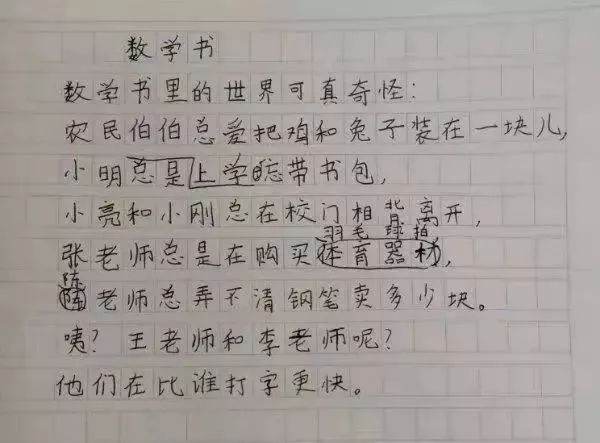 数学书
数学书里的世界可真奇怪:
农民伯伯总爱把鸡和兔子装在一块儿,
小明总是上学忘带书包,
小亮和小刚总在校门相背离开,
羽毛球拍
张老师总是在购买体育器材,
陈
老师总弄不清钢笔卖多少块。
咦?王老师和李老师呢?
他们在比谁打字更快。